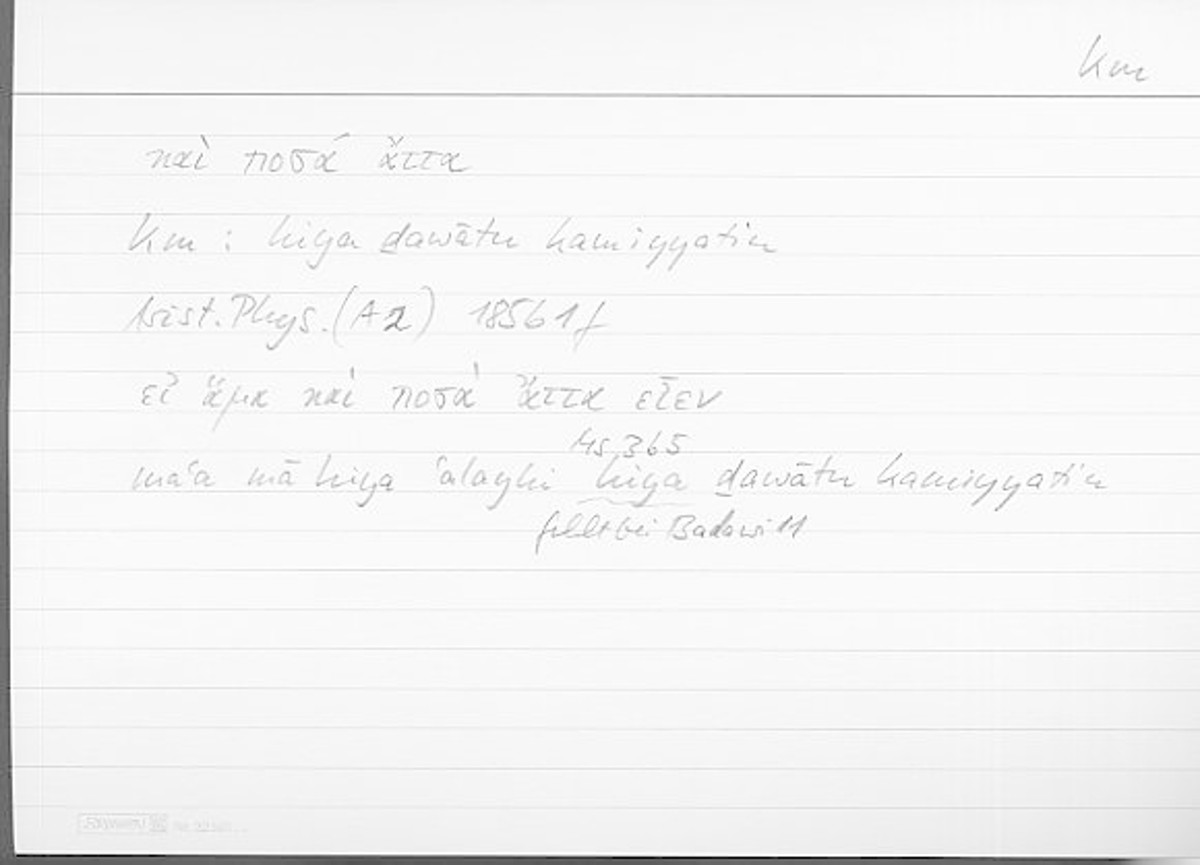 Km
καὶ ποσά ἄττα
Km : hiya ḏawātu kamiyyatin
Arist. Phys. (A2) 185b1f
εἰ ἅμα καὶ ποσὰ ἄττα εἶεν
Hs 365
maʿa mā hiya ʿalayhi hiya ḏawātu kamiyyatin
fehlt bei Badawi 11